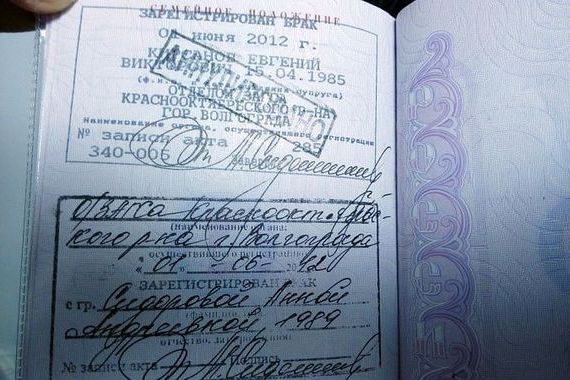 СЕМЕЙНОЕ ПОЛОЖЕНИЕ
ЗАРЕГИСТРИРОВАН БРАК
01 июня 2012 г.
ЕВГЕНИЙ
15.04.1985
ОТДЕЛОМ ЗАГСА
КРАСНООКТЯБРЬСКОГО Р-НА
ГОР. ВОЛГОГРАДА
Наименование органа, осуществившего регистрацию
№ записи акта 285
340-006
О/ЗАГСа Краснооктябрьс-
кого р-на г. Волгограда
(наименование органа,
осуществившего регистрацию)
"01" 06 2012
ЗАРЕГИСТРИРОВАН БРАК
с гр. Сидоровой Анной
Андреевной, 1989
отчество, дата рождения
№ записи акта Подпись